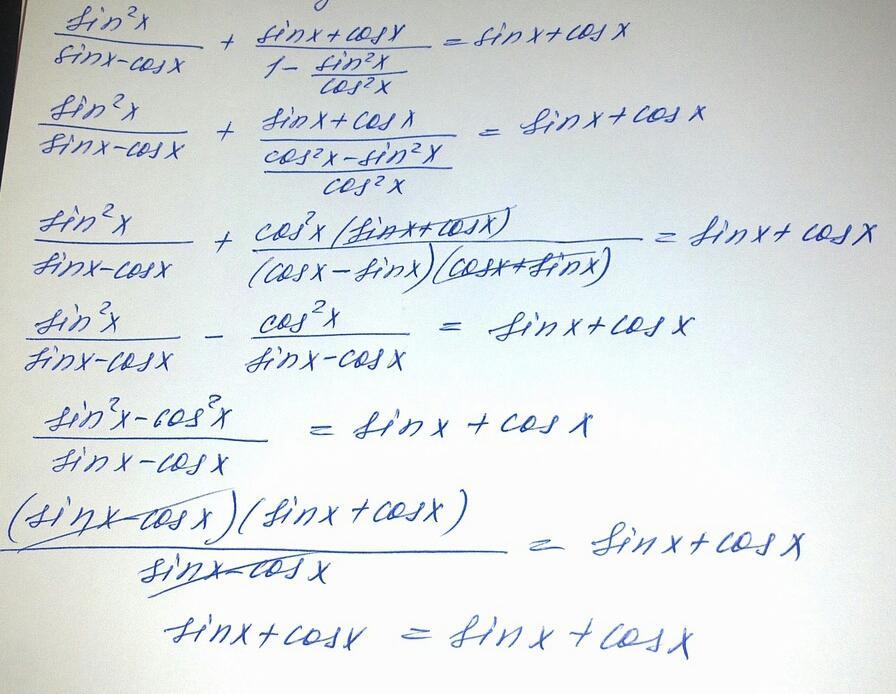 sin²x/(sinx-cosx) + (sinx+cosx)/(1-sin²x/cos²x) = sinx+cosx
sin²x/(sinx-cosx) + (sinx+cosx)/((cos²x-sin²x)/cos²x) = sinx+cosx
sin²x/(sinx-cosx) + cos²x(sinx+cosx)/((cosx-sinx)(cosx+sinx)) = sinx+cosx
sin²x/(sinx-cosx) - cos²x/(sinx-cosx) = sinx+cosx
(sin²x-cos²x)/(sinx-cosx) = sinx+cosx
(sinx-cosx)(sinx+cosx)/(sinx-cosx) = sinx+cosx
sinx+cosx = sinx+cosx